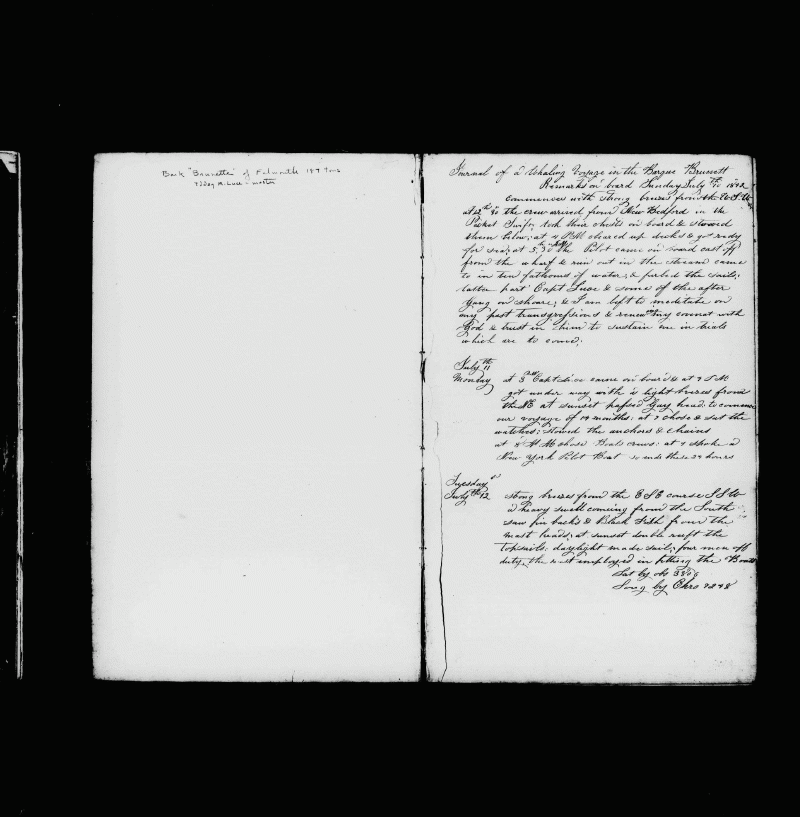 Bark "Brunette" of Falmouth 197 Tons
R. Luce - master
Journal of a Whaling Voyage in the Barque Brunett
Remarks on board Sunday July 10th 1842
Commences with strong brezes from the W.S.W
at 12th 30 the crew arrived from New Bedford in the
Packet took their chests on board & stowed
them below; at 4 PM cleared up decks & got redy
for sea; at 5h 30 the Pilot came on board cast off
from the wharf & run out in the stream came
to in ten fathoms of water; & furled the sails;
latter part Capt Luce & some of the after
gang on shoare; & I am left to meditate on
my past transgressions & renew my covnat with
God & trust in him to sustain me in trials
which are to come;
July 11th
Monday at 3 Capt Luce came on board & at 9 A M
got under way with a light brezes from
the NE at sunset passed Gay head to commence
our voyage of 19 months; at 7 chose & sat the
watches; stowed the anchors & chains
at 8 P.M chose Boats crews; at 9 spoke a
New York Pilot Boat so ends these 24 hours
Tuesday
July 12th stong brezes from the E S E course S S W
a heavy swell comeing from the South
saw fin backs & Black Fish from the
mast heads; at sunset double reeft the
topsails; daylight made sail; four men off
duty, the rest imployed in fitting the Boats
Lat by obs 38 06
Long by Chro 72 48